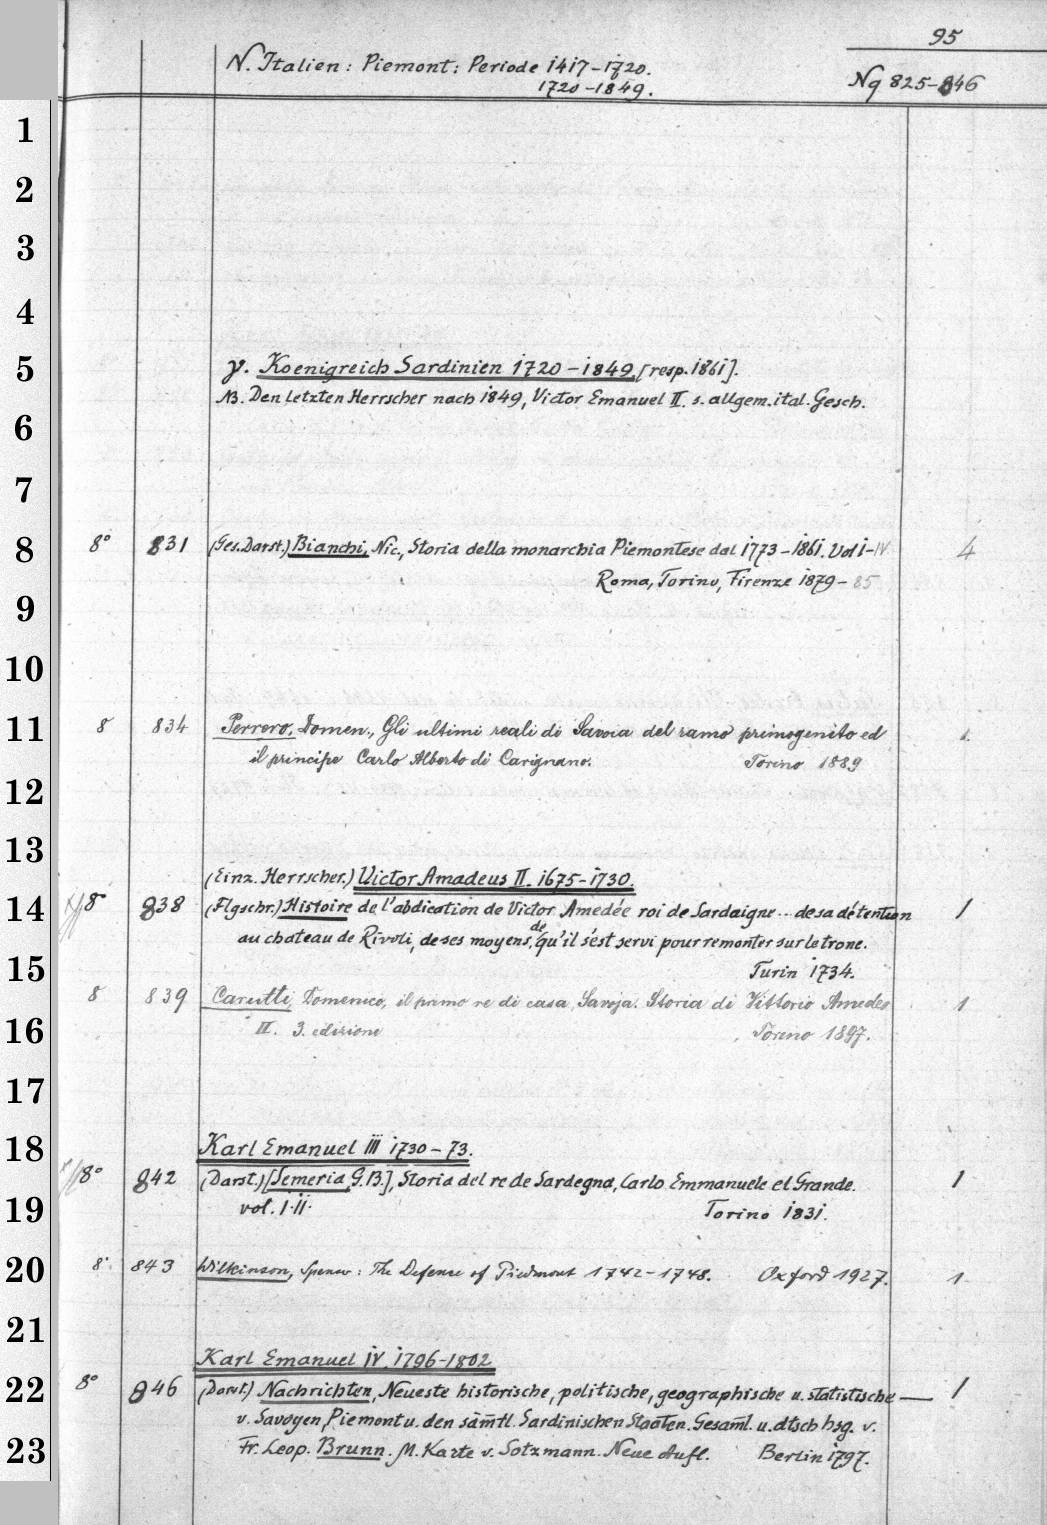 95
N. Italien: Piemont: Periode 1417-1720.
1720-1849.
Nq 825-846
1
2
3
4
5
γ. Koenigreich Sardinien 1720-1849 [resp. 1861].
NB. Den letzten Herrscher nach 1849, Victor Emanuel II. s. allgem. ital. Gesch.
6
7
8
8° 831 (Ges. Darst.) Bianchi, Nic., Storia della monarchia Piemontese dal 1773-1861. Vol I-IV 4
Roma, Torino, Firenze 1879-85
9
10
11
8 834 Perrero, Domen., Gli ultimi reali di Savoia del ramo primogenito ed 1.
il principe Carlo Alberto di Carignano. Torino 1889
12
13
(Einz. Herrscher.) Victor Amadeus II. 1675-1730.
14
8 838 (Flgschr.) Histoire de l'abdication de Victor Amedée roi de Sardaigne... de sa détention 1
au chateau de Rivoli, de ses moyens, de qu'il s'est servi pour remonter sur le trone.
15
Turin 1734.
8 839 Carutti, Domenico, il primo re di casa Savoja. Storia di Vittorio Amedeo 1
16
II. 3. edizione Torino 1897.
17
18
Karl Emanuel III 1730-73.
8° 842 (Darst.) [Semeria, G.B.], Storia del re de Sardegna, Carlo Emmanuele el Grande. 1
19
vol. I.II. Torino 1831.
20
8° 843 Wilkinson, Spenser: The Defense of Piedmont 1742-1748. Oxford 1927. 1
21
Karl Emanuel IV. 1796-1802
22
8° 846 (Darst.) Nachrichten, Neueste historische, politische, geographische u. statistische — 1
v. Savoyen, Piemont u. den sämtl. Sardinischen Staaten. Gesam̅l. u. dtsch hsg. v.
23
Fr. Leop. Brunn. M. Karte v. Sotzmann. Neue Aufl. Berlin 1797.